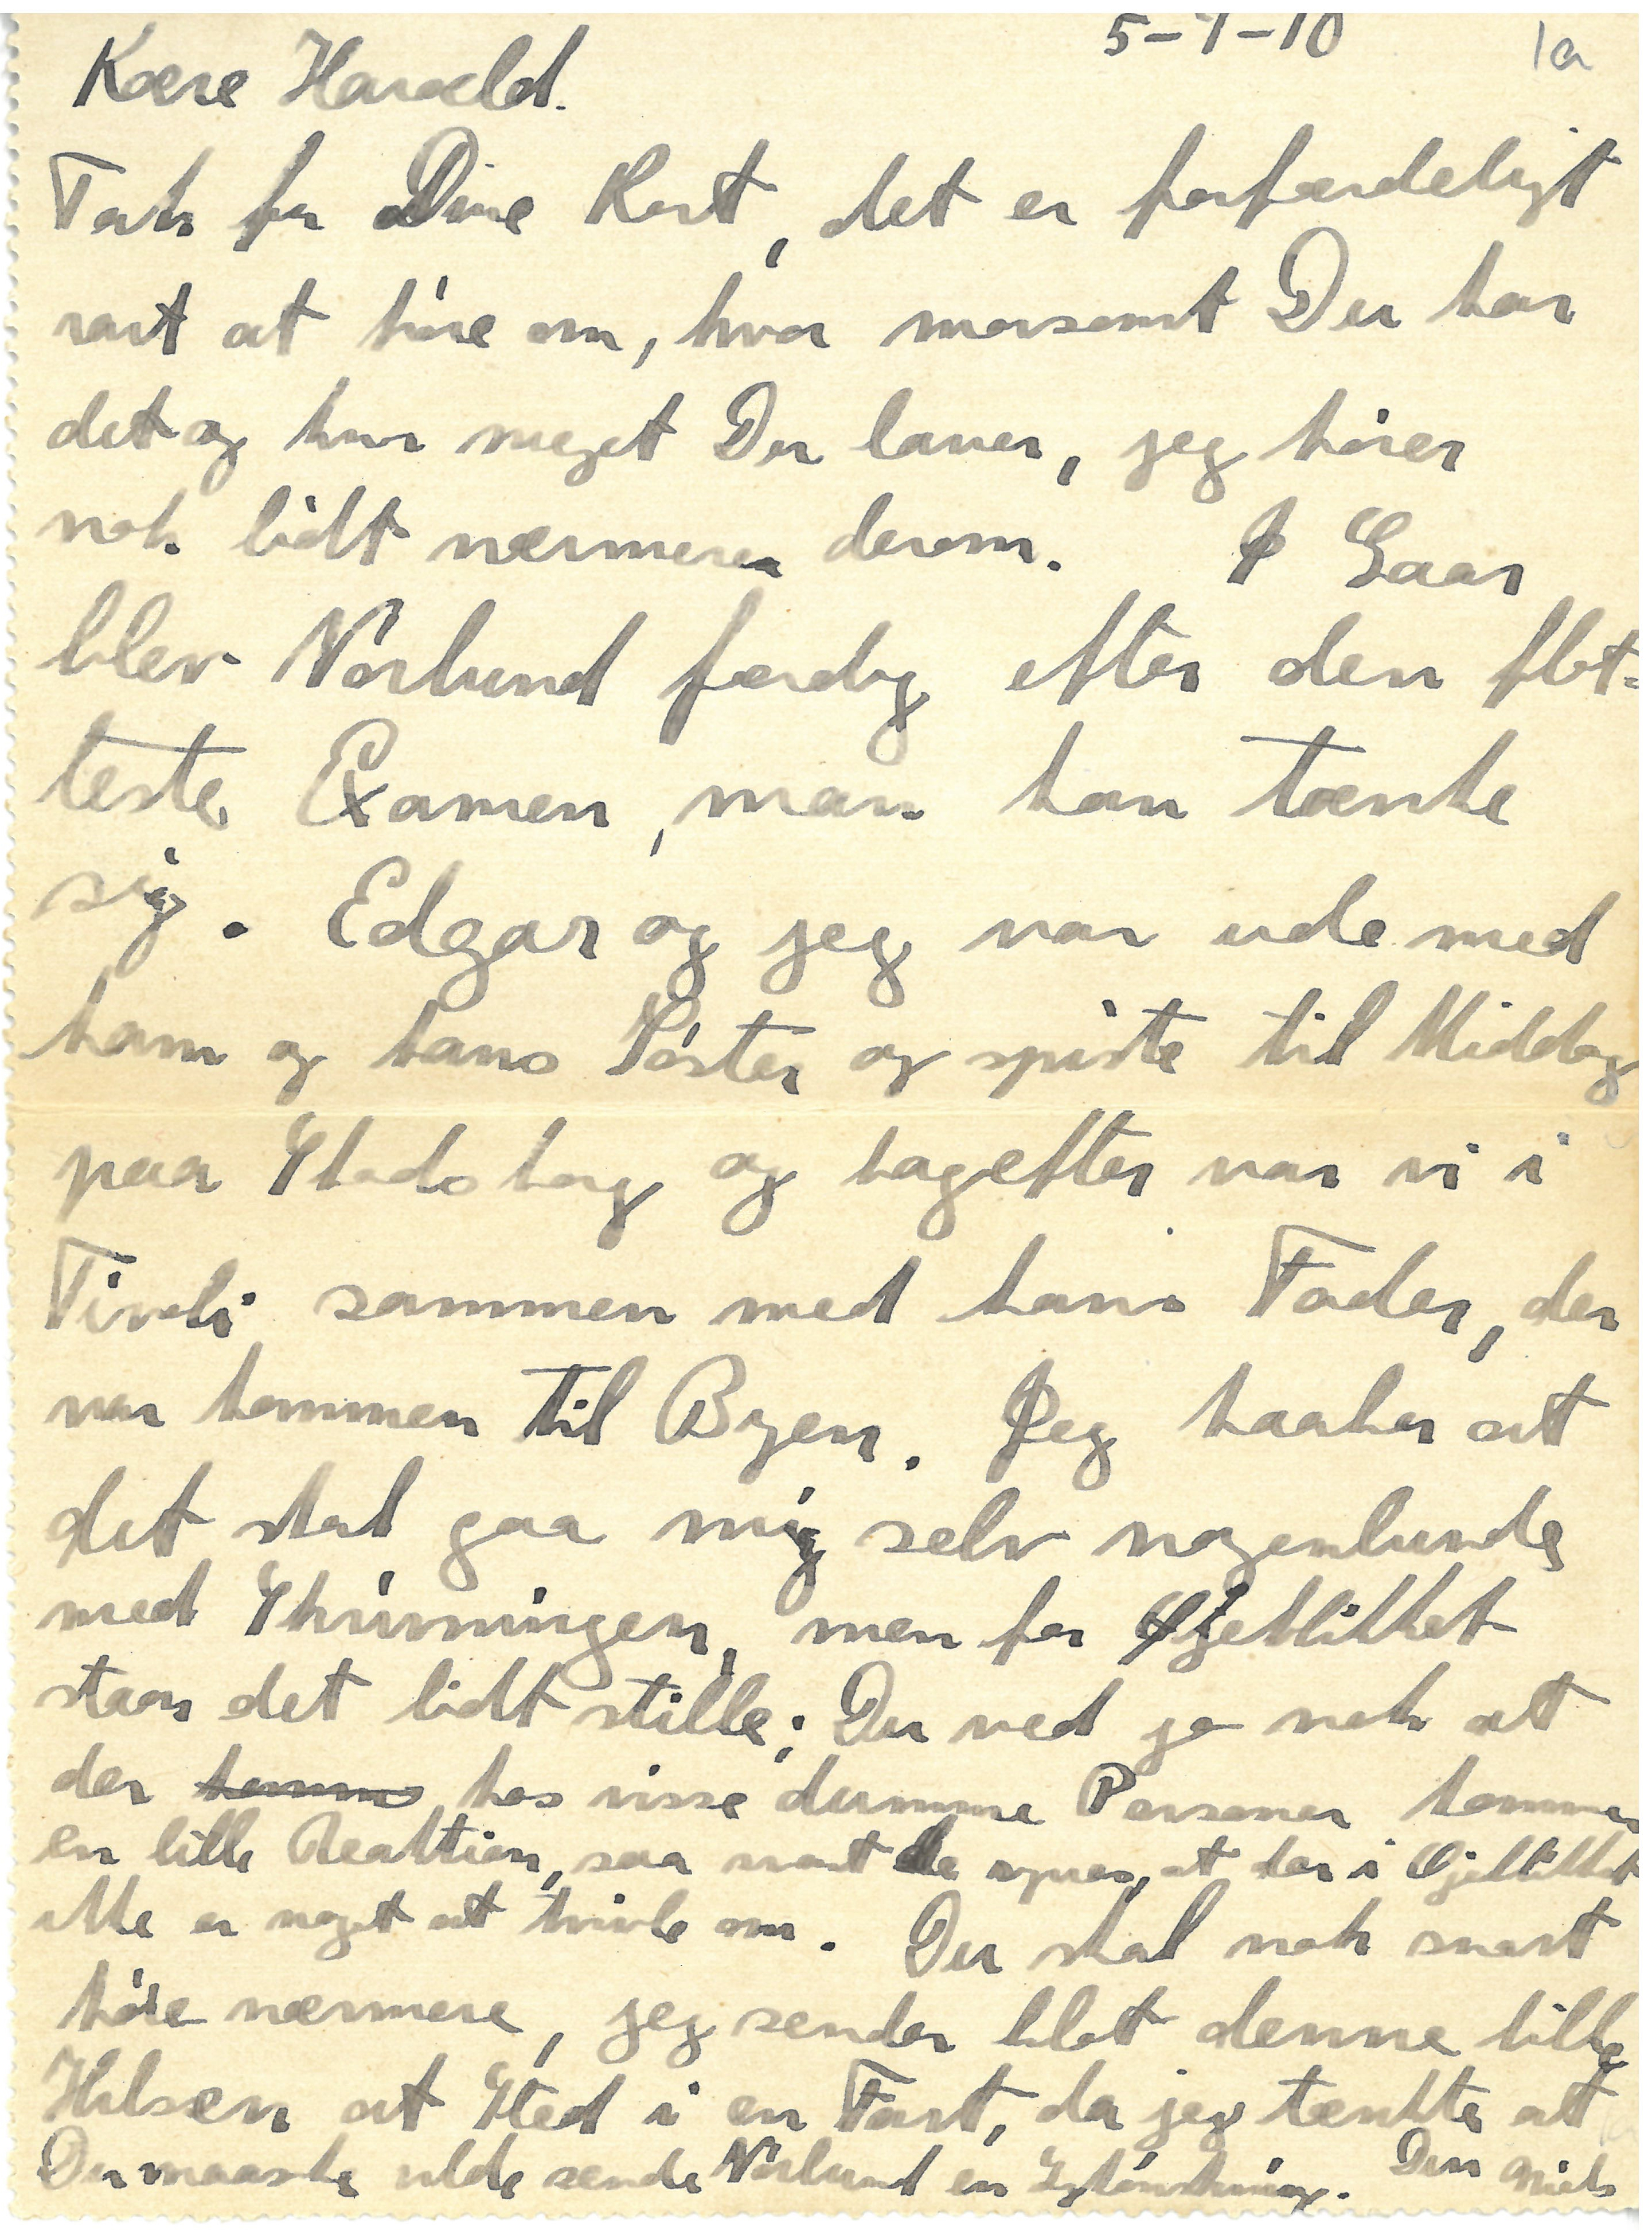 5-7-10 1a
Kære Harald.
Tak for Dine Kort, det er forfærdeligt
rart at höre om, hvor morsomt Du har
det og hvor meget Du laver, jeg hører
nok lidt nærmere derom. I Gaar
blev Nörlund færdig efter den flot-
teste Examen, man kan tænke
sig. Edgar og jeg var ude med
ham og hans Söster og spiste til Middag
paa Skodsborg og bagefter var vi i
Tivoli sammen med hans Fader, der
var kommen til Byen. Jeg haaber at
det skal gaa mig selv nogenlunde
med Skrivningen, men for Øjeblikket
staar det lidt stille; Du ved jo nok at
der komme hos visse dumme Personer kommer
en lille Reaktion, saa snart de synes, at der i Øjeblikket
ikke er noget at tvivle om. Du skal nok snart
höre nærmere, jeg sender blot denne lille
Hilsen at Sted i en Fart, da jeg tænkte at
Du maaske vilde sende Nörlund en Lykönskning. Din Niels